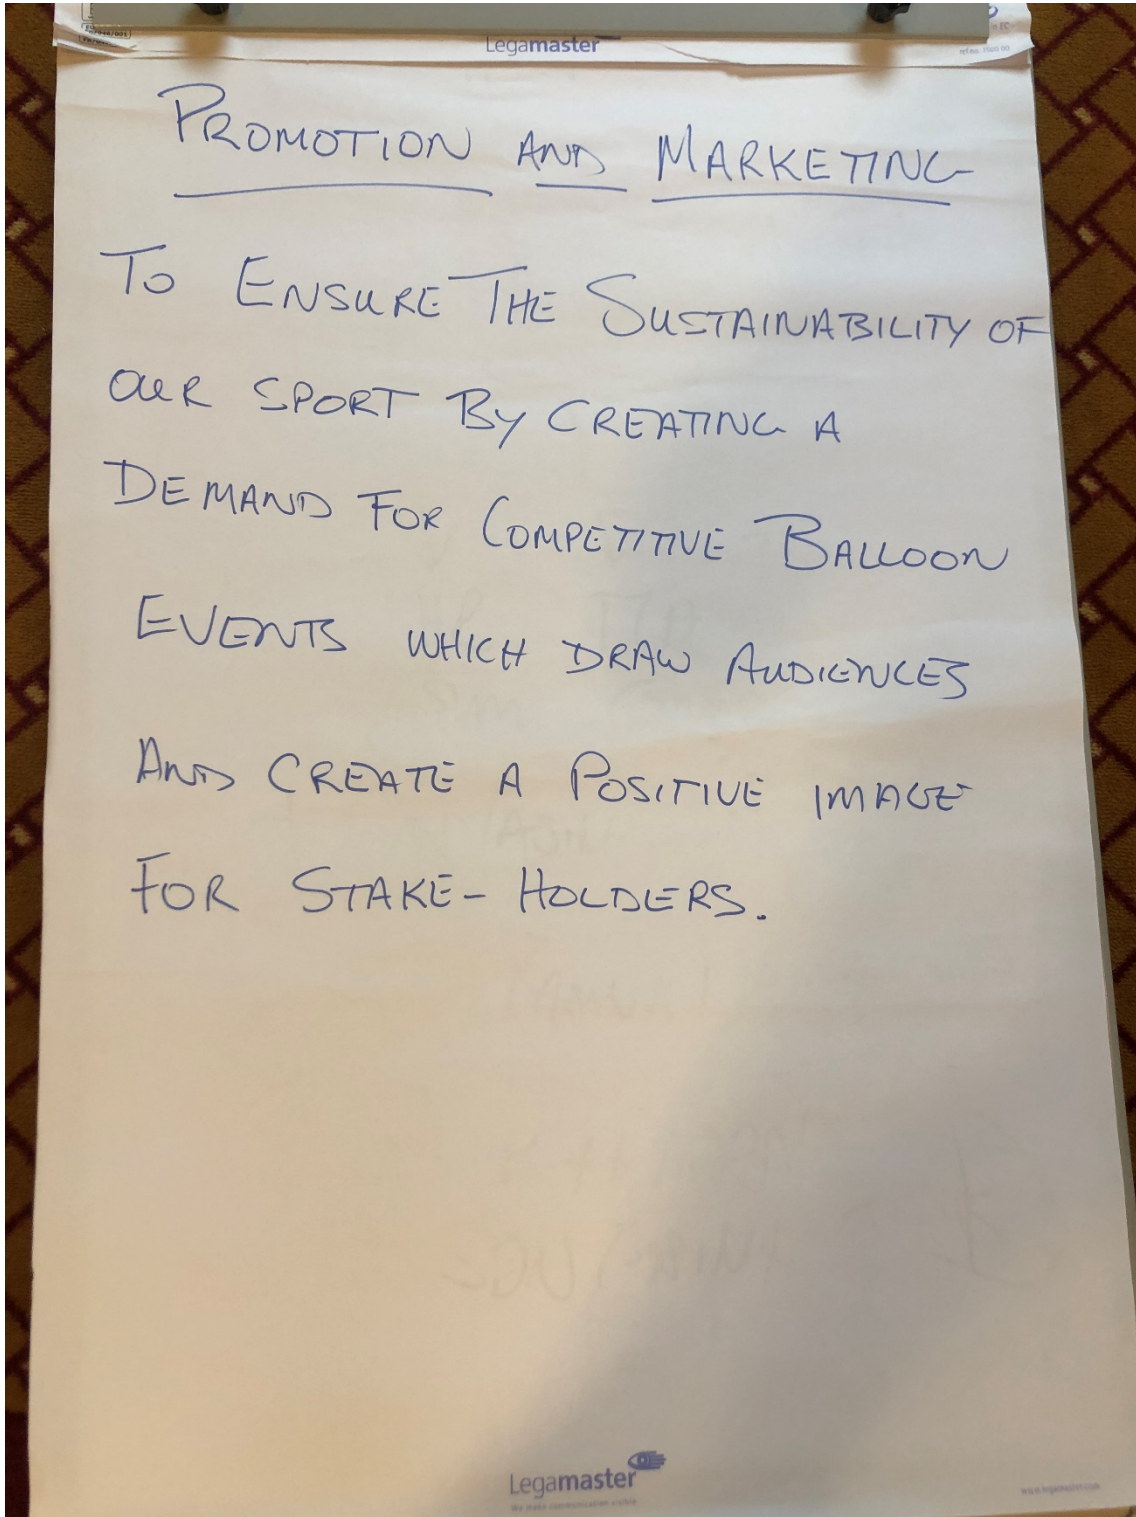 Legamaster
PROMOTION AND MARKETING
TO ENSURE THE SUSTAINABILITY OF
OUR SPORT BY CREATING A
DEMAND FOR COMPETITIVE BALLOON
EVENTS WHICH DRAW AUDIENCES
AND CREATE A POSITIVE IMAGE
FOR STAKE-HOLDERS.
Legamaster
We make communication visible
www.legamaster.com